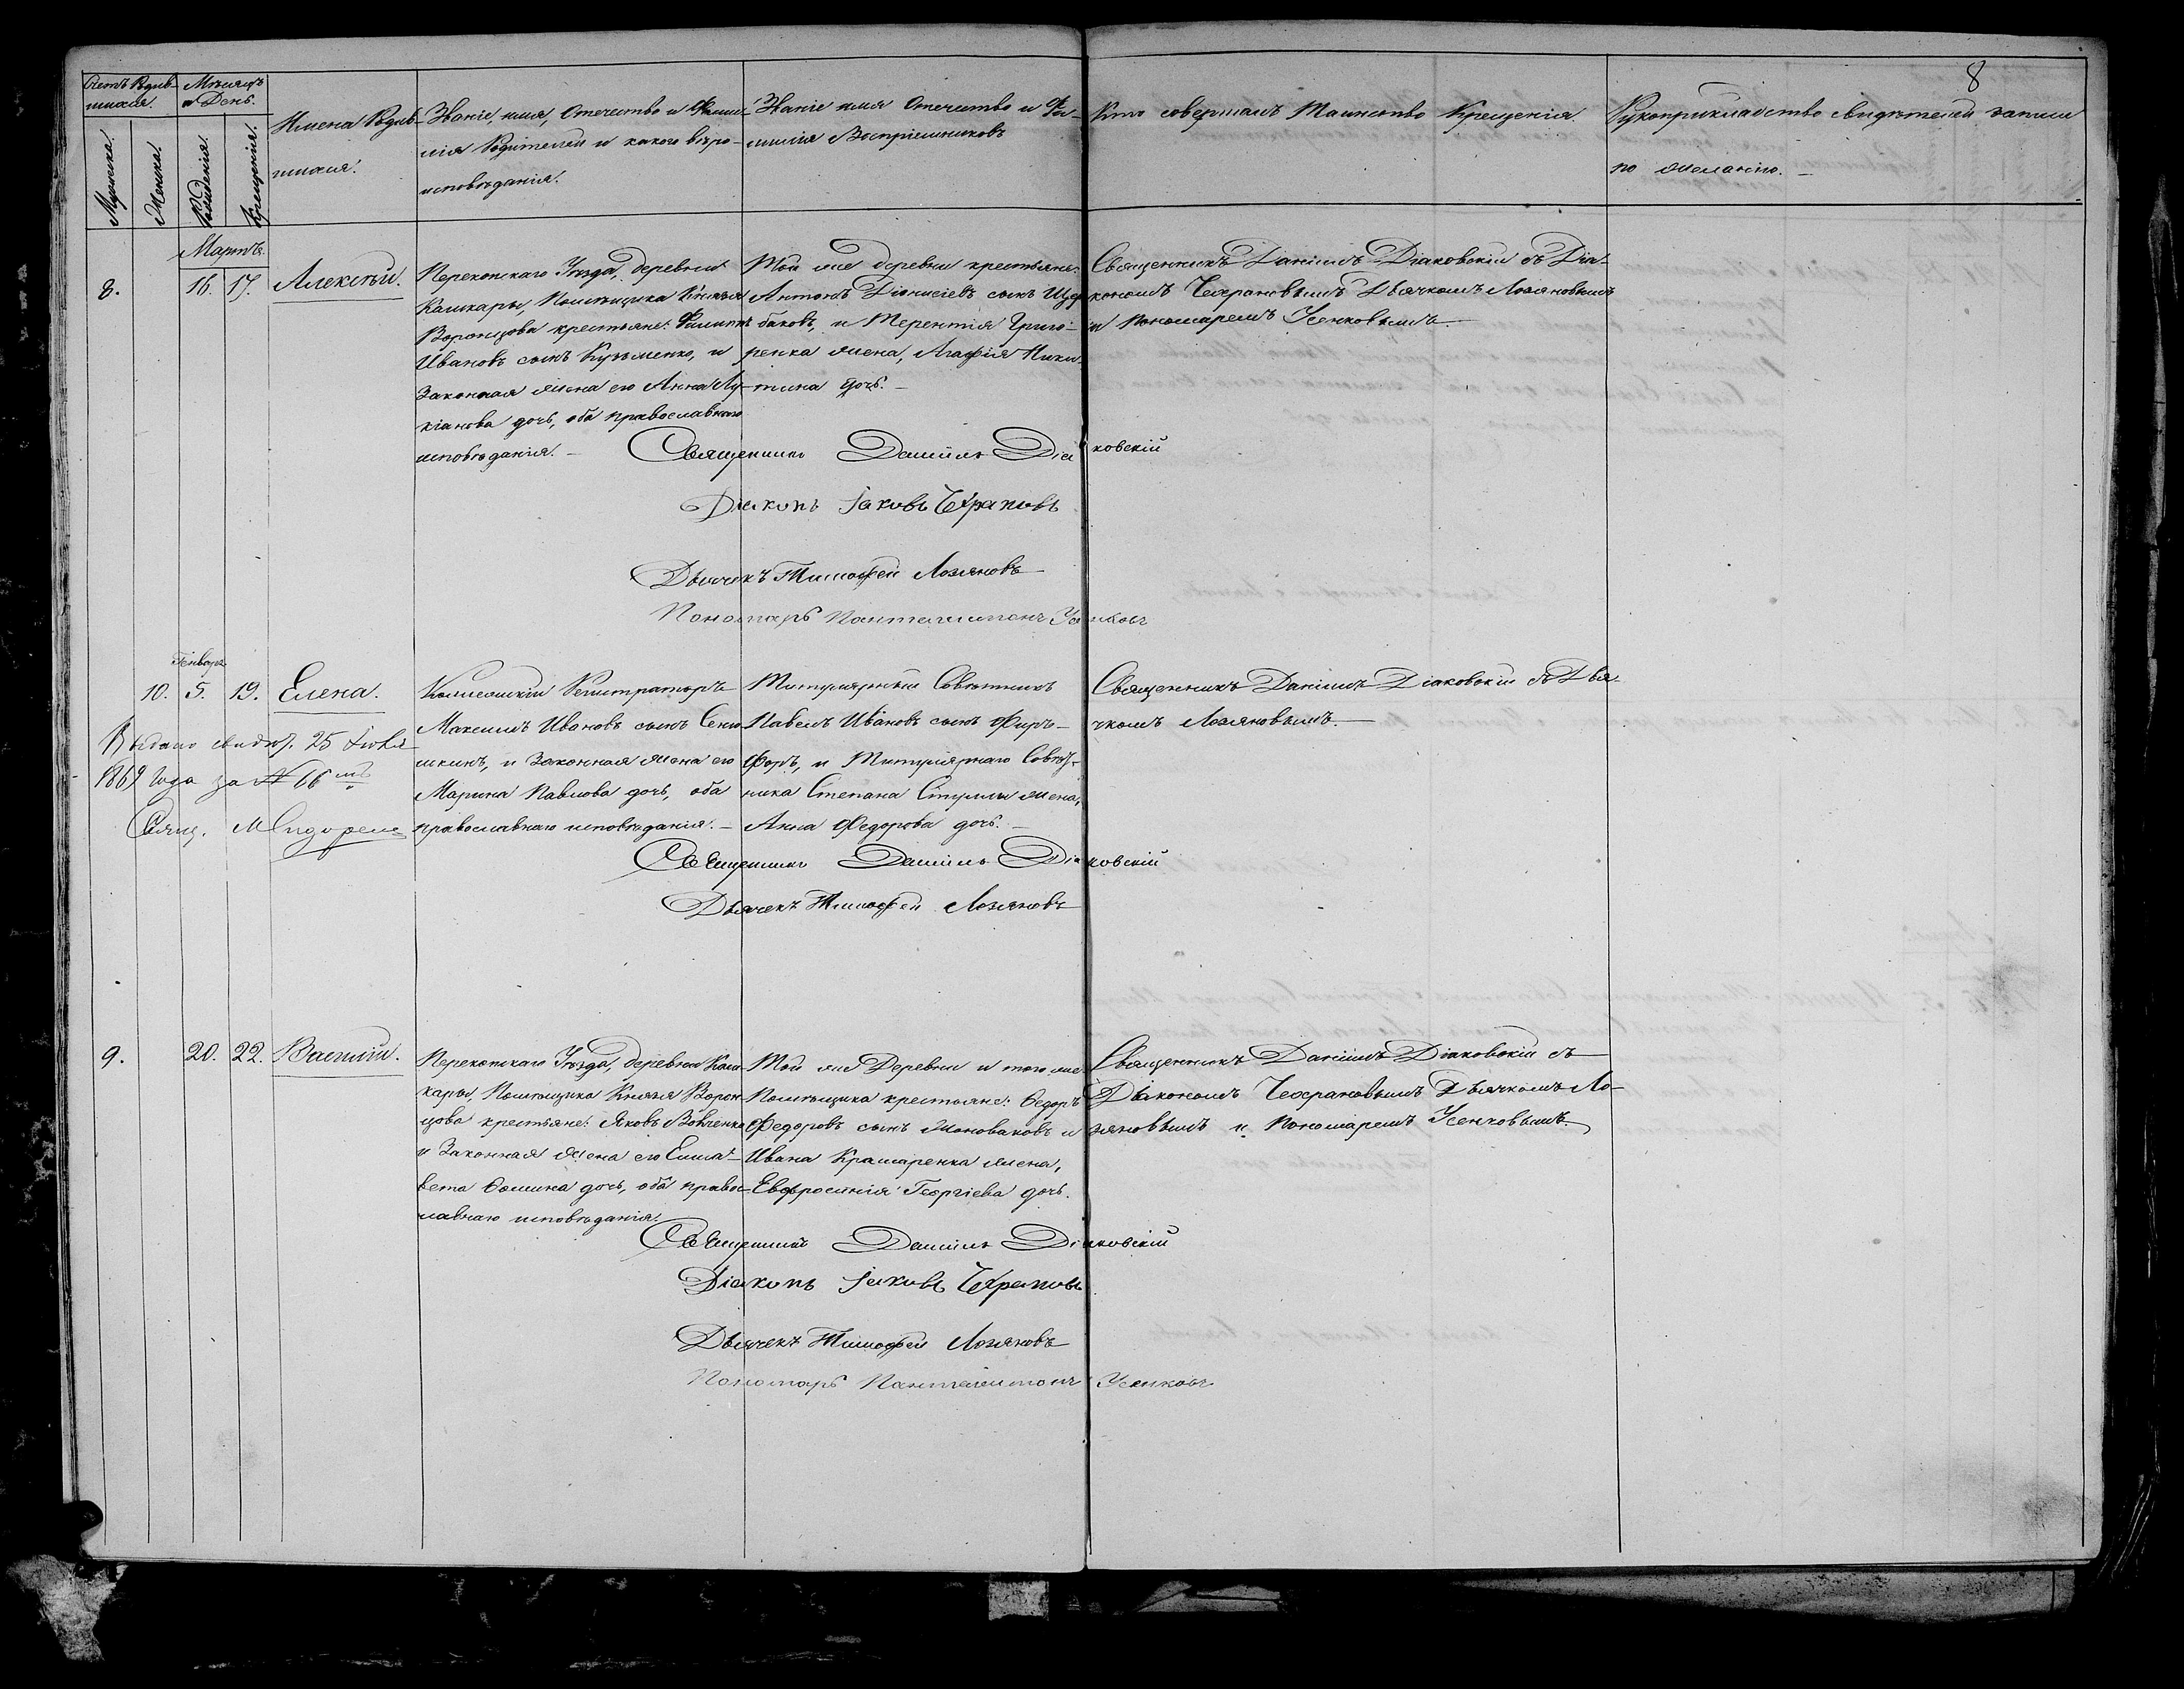 8
Счетъ Родив-
шихся.
Мѣсяцъ
и День.
Мужеска.
Женска.
Рожденія.
Крещенія.
Имена Родив-
шихся.
Званіе, имя, Отечество и Фами-
лія Родителей и какого вѣро-
исповѣданія.
Званіе имя Отечество и Фа-
милія Воспріемниковъ
Кто совершалъ Таинство Крещенія.
Рукоприкладство свидѣтелей записи
по желанію.
Мартъ.
8.
16.
17.
Алексѣй.
Перекопскаго Уѣзда, деревни
Кашкары, Помѣщика Князя
Воронцова крестьяне: Филиппъ
Ивановъ сынъ Кузьменко, и
Законная жена его Анна Лу-
кіанова дочь, оба православнаго
исповѣданія.
Той же деревни крестьяне:
Антонъ Діонисіевъ сынъ Щер-
баковъ, и Терентія Григо-
ренка жена, Агафія Ники-
тина дочь.
Священникъ Даніилъ Діаковскій съ Діа-
кономъ Чехрановымъ Дьячкомъ Лозяновымъ
и Пономаремъ Усенковымъ.
Священникъ Даніилъ Діаковскій
Діаконъ Іаковъ Чехрановъ
Дьячекъ Тимофей Лозяновъ
Пономарь Пантелеимонъ Усенковъ
Генварь
10.
5.
19.
Елена.
Выдано свидѣт. 25 Іюля
1869 года за № 66мъ
Свящ. М Сидоренко
Коллежскій Регистраторъ
Максимъ Ивановъ сынъ Сеню-
шкинъ, и Законная жена его
Марина Павлова дочь, оба
православнаго исповѣданія.
Титулярный Совѣтникъ
Павелъ Ивановъ сынъ Фиръ-
форъ, и Титулярнаго Совѣт-
ника Степана жена,
Анна Федорова дочь.
Священникъ Даніилъ Діаковскій съ Дья-
чкомъ Лозяновымъ.
Священникъ Даніилъ Діаковскій
Дьячекъ Тимофей Лозяновъ
9.
20.
22.
Василій.
Перекопскаго Уѣзда, деревни Каш-
кары, Помѣщика Князя Ворон-
цова крестьяне: Яковъ Вовченко
и Законная жена его Елиса-
вета Ѳомина дочь, оба правос-
лавнаго исповѣданія.
Той же Деревни и того же
Помѣщика крестьяне: Ѳедоръ
Федоровъ сынъ Коноваловъ и
Ивана Крамаренка жена,
Евфросинія Георгіева дочь.
Священникъ Даніилъ Діаковскій съ
Діакономъ Чехрановымъ Дьячкомъ Ло-
зяновымъ и Пономаремъ Усенковымъ
Священникъ Даніилъ Діаковскій
Діаконъ Іаковъ Чехрановъ
Дьячекъ Тимофей Лозяновъ
Пономарь Пантелеимонъ Усенковъ